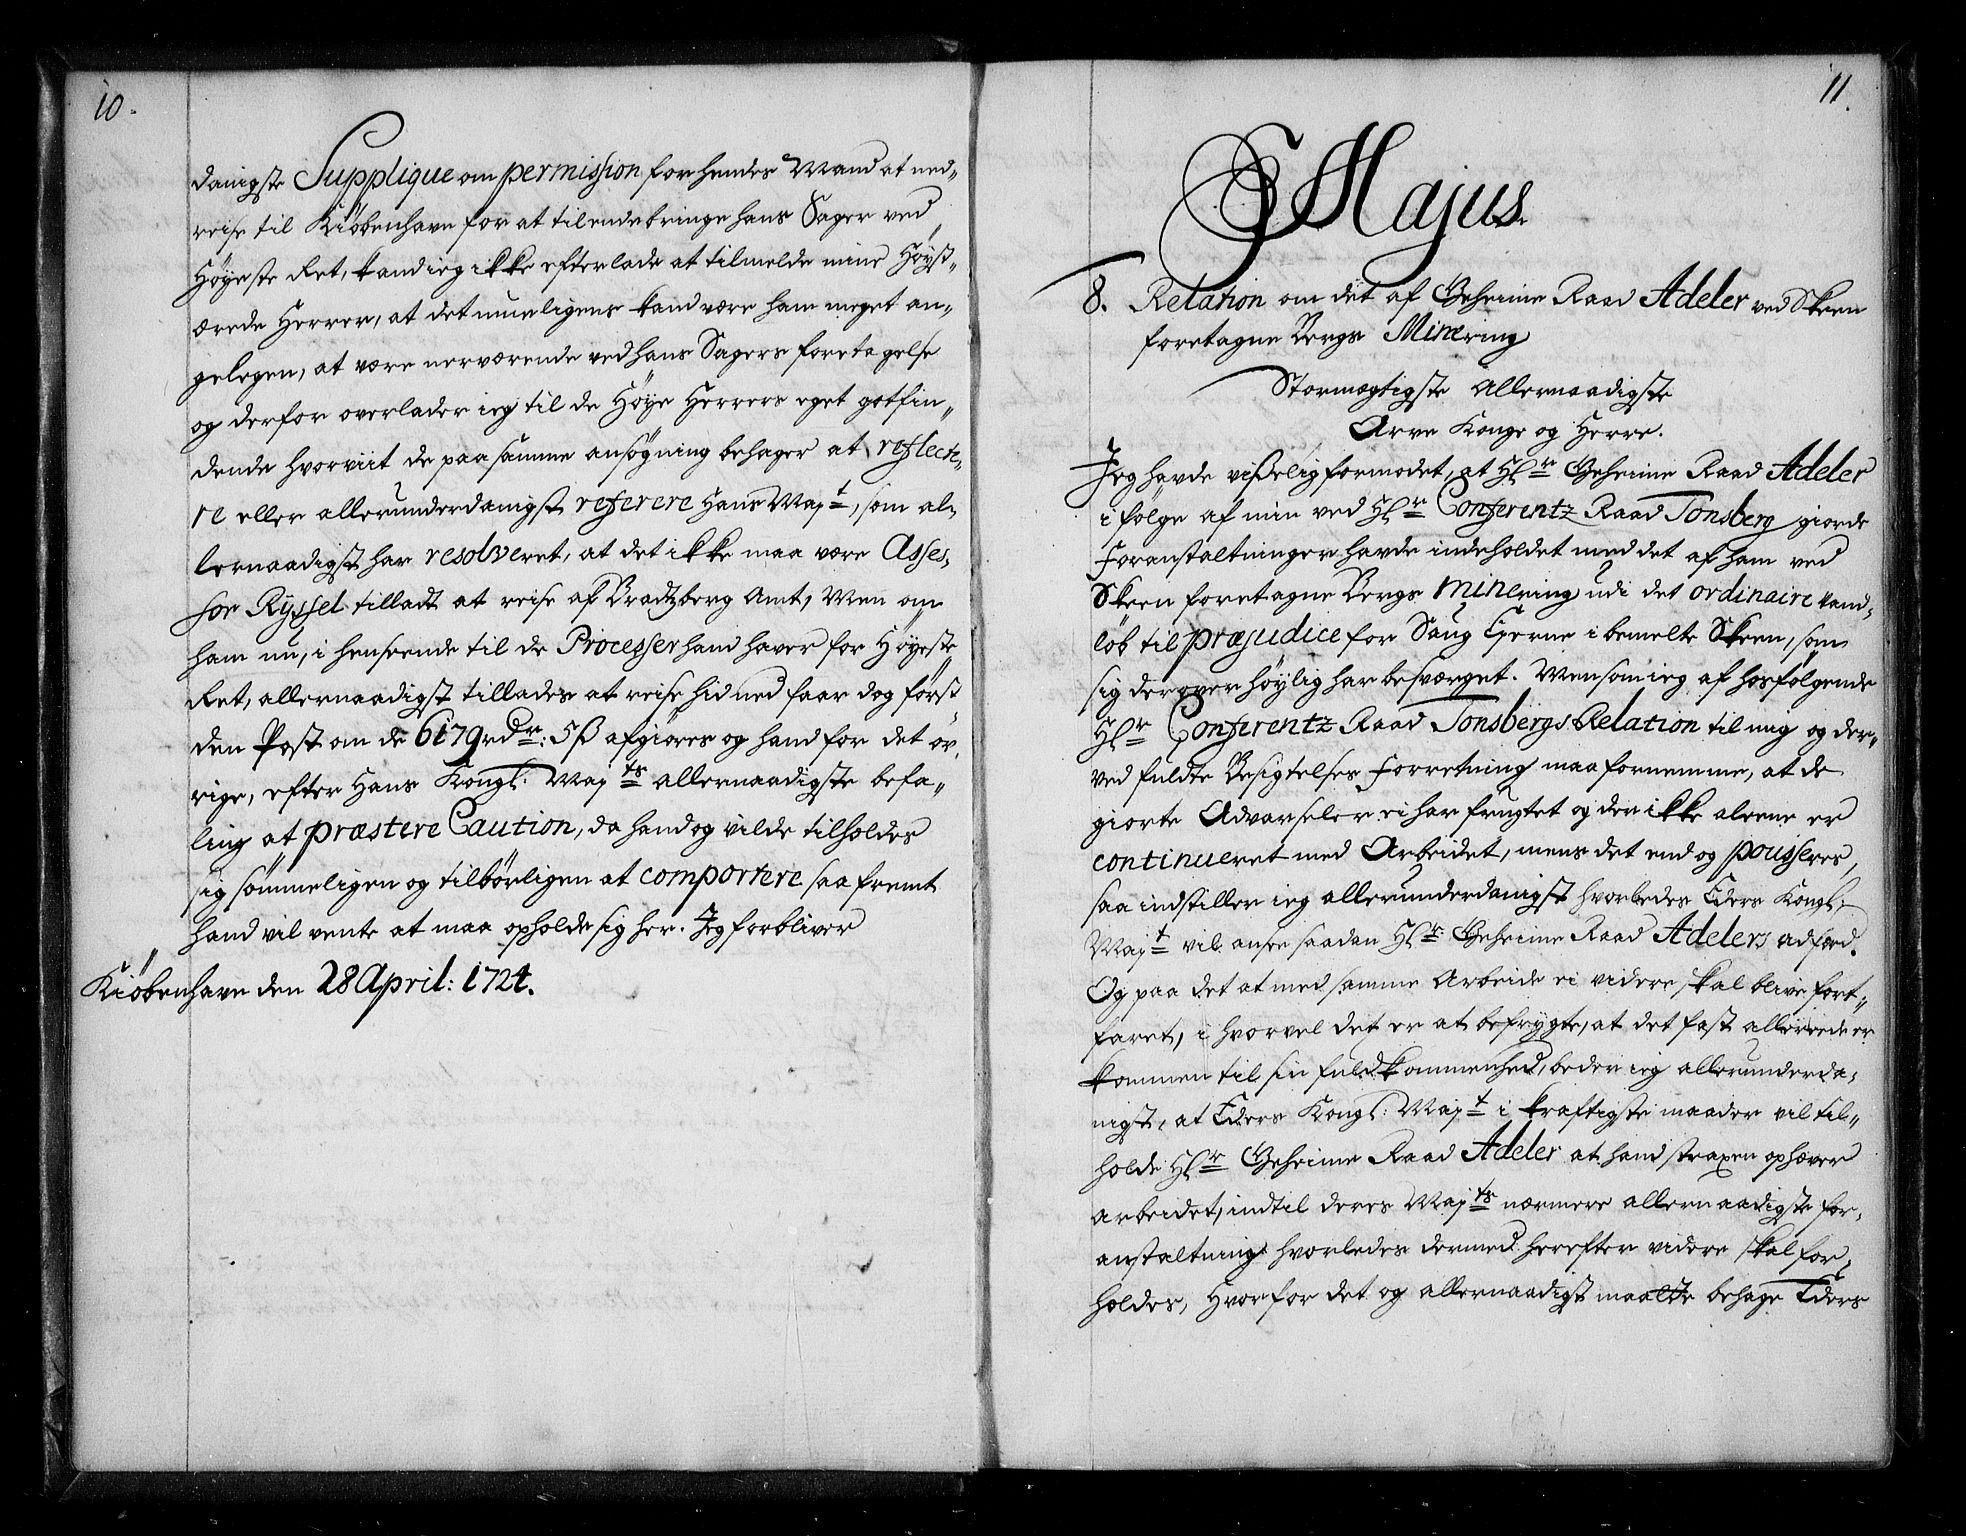 10.
danigste Supplique om permission for hendes Mand at ned-
reise til Kiöbenhavn for at tilendebringe hans Sager ved
Höyeste Ret, kand ieg ikke efterlade at tilmelde mine Höyst-
ærede Herrer, at det mueligens kand være ham meget an-
gelegen, at være nerværende ved hans Sagers foretagelse
og derfor overlader ieg til de Höye Herrers eget gotfin-
dende hvorviit de paa samme ansögning behager at reflecte-
re eller allerunderdanigst referere Hans Mayt, som al-
lernaadigst har resolveret, at det ikke maa være Asses-
sor Ryssel tilladt at reise af Bradtzberg Amt, Men om
ham nu, i henseende til de Processer hand haver for Höyeste
Ret, allernaadigst tillades at reise hid ned faar dog först
den Post om de 6179 rdr: 5 β afgiöres og hand for det öv-
rige, efter Hans Kongl: Mayts allernaadigste befa-
ling at præstere Caution, da hand og vilde tilholdes
sig sömmeligen og tilbörligen at comportere saa fremt
hand vil vente at maa opholde sig her. Jeg forbliver
Kiöbenhavn den 28 April: 1724.
11.
Majus.
8. Relation om det af Geheime Raad Adeler ved Skeen
foretagne Bergs Minering
Stormægtigste Allernaadigste
Arve Konge og Herre.
Jeg havde visselig formodet, at Hr Geheime Raad Adeler
i fölge af min ved Hr Conferentz Raad Tonsberg giorde
Foranstaltninger havde indeholdet med det af ham ved
Skeen foretagne Bergs minering udi det ordinaire vand-
löb til præjudice for Saug Eyerne i bemelte Skeen, som
sig derover höylig har besværget. Men som ieg af hosfölgende
Hr Conferentz Raad Tonsbergs Relation til mig og der-
ved fuldte Besigtelses Forretning maa fornemme, at de
giorte Advarseler ei har frugtet og der ikke aleene er
continueret med Arbeidet, mens det end og pousseres,
saa indstiller ieg allerunderdanigst hvorledes Eders Kongl:
Mayt vil ansee saadan Hr: Geheime Raad Adelers adfærd.
Og paa det at med samme Arbeide ei videre skal blive fort-
faret, i hvorvel det er at befrygte, at det fast allereede er
kommen til sin fuldkommenhed, beder ieg allerunderda-
nigst, at Eders Kongl: Mayt i kraftigste maader vil til-
holde Hr Geheime Raad Adeler at hand straxen ophæver
arbeidet, indtil deres Mayts nærmere allernaadigste for-
anstaltning hvorledes dermed herefter videre skal for-
holdes, Hvorfor det og allernaadigst maatte behage Eders